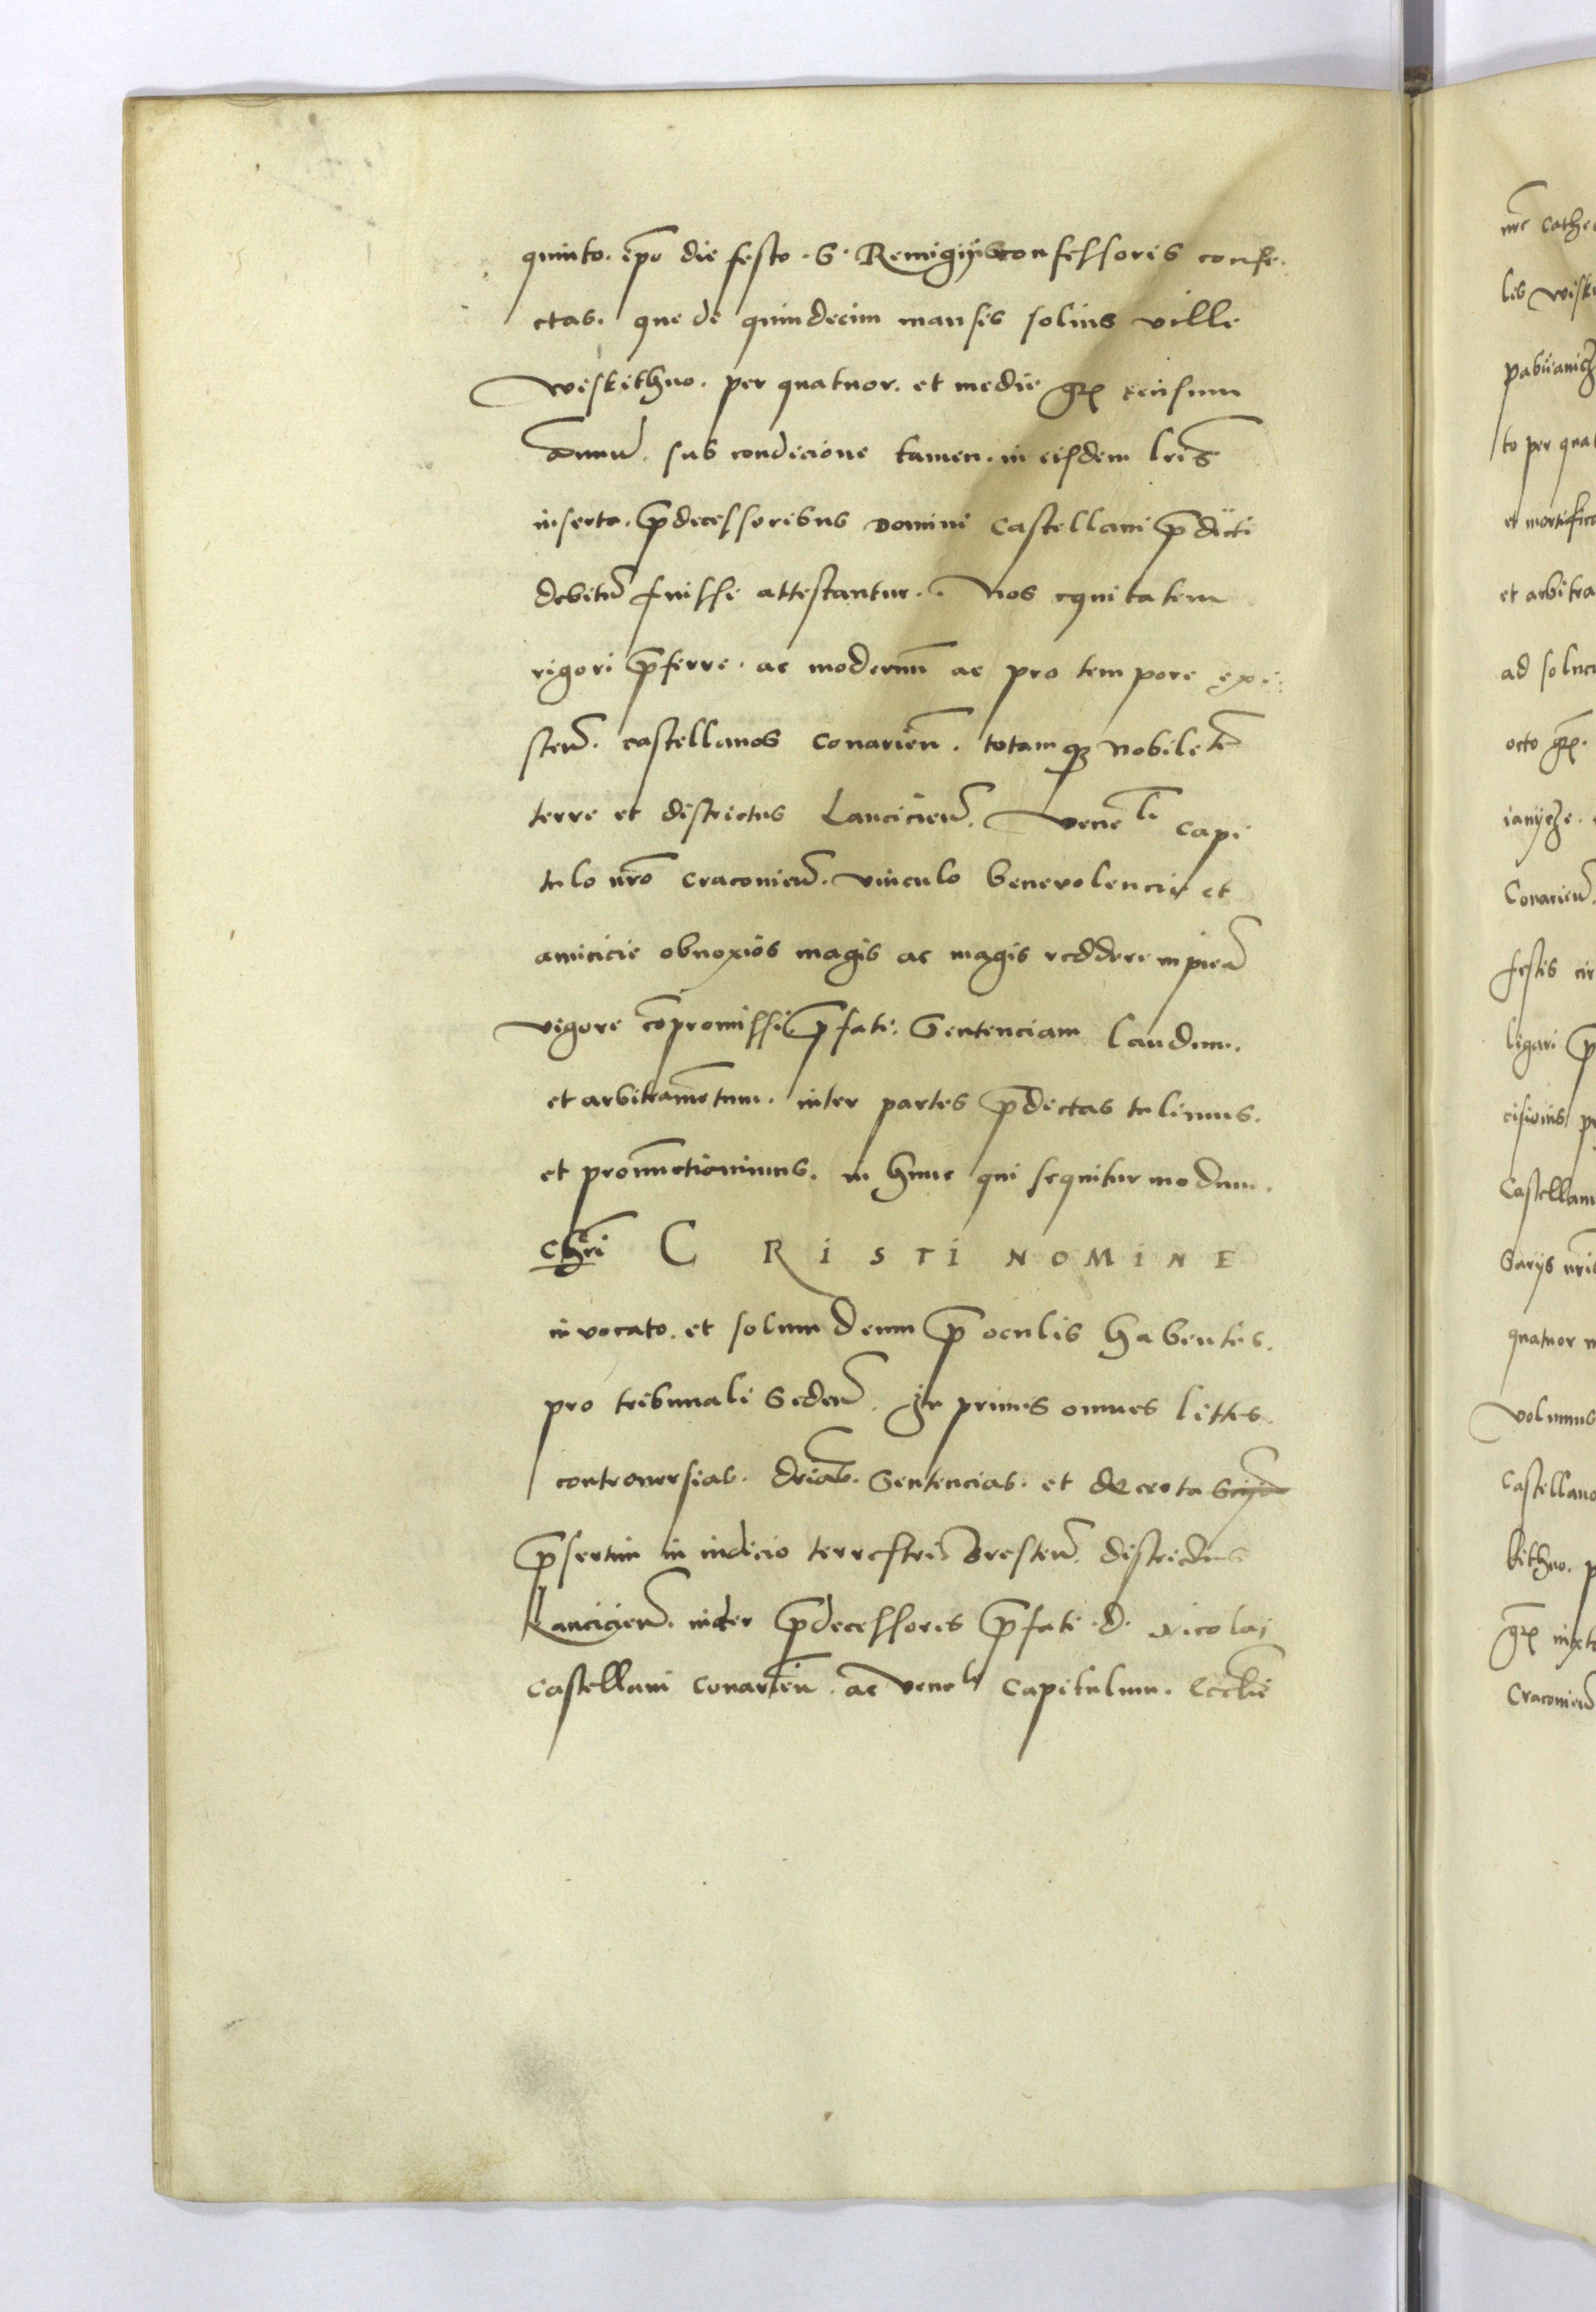 quinto. ip̄o die festo. S. Remigij confessoris confe.
ctas. que de quindecim mansis solius ville
wiskithno. per quatuor. et medie gr̄ censum
Annuū. sub condicione tamen. in eisdem lr̄is
inserta. p̄decessoribus Domini Castellani p̄dicti
debitū fuisse attestantur. Nos equitatem
rigori p̄ferre. ac modernū ac pro tempore exi
sten̄. castellanos Conarien̄. totamqȝ nobile tē
terre et districtus Lancicien̄. Venle Capi
tulo nr̄o Craconien̄. vinculo benevolencie et
amicicie obnoxios magis ac magis reddere
vigore cōpromissi p̄fati. Sentenciam laudum.
et arbitramentum. inter partes p̄dictas tulimus.
et pronunctiavimus. in hunc qui sequitur modum.
Chr̄i CRISTI NOMINE
invocato. et solum deum p̄ oculis habentes.
pro tribunali Seden̄. In primis omnes littes.
controversias. dr̄ias. Sentencias. et decreta
p̄sertim in iudicio terrestri Bresten̄. districtus
Lancicien̄. inter p̄decessores p̄fati. d. Nicolai
Castellani Conarien̄. ac venle Capitulum. Eccl̄ie
nr̄e Cathe
lis wisk
pabianicȝ
to per quat
et mortifica
et arbitra
ad soluci
octo gr̄.
Conarien̄.
festis cir
ligari p̄
cisionis p
Castellani
quatuor
volumus
Castellano
kithno. p
gr̄ iuxta
Craconien̄